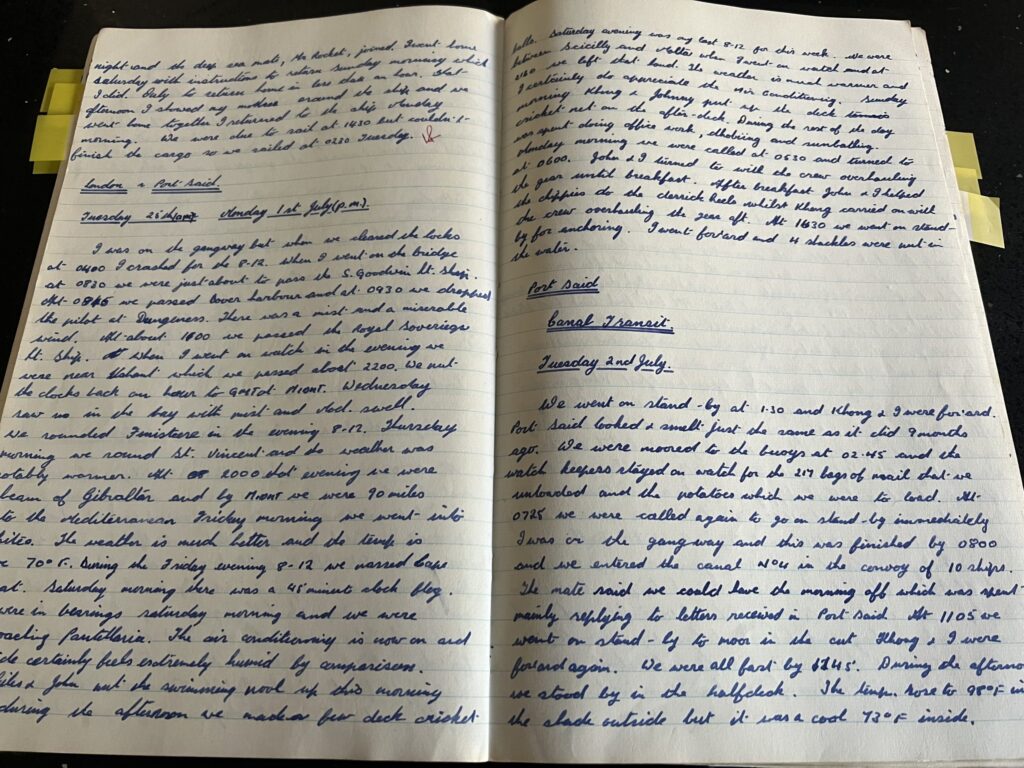 night and the deep sea mate, Mr Rocket, joined. I went home
Saturday with instructions to return Sunday morning which
I did. Only to return home in less than an hour. Sat-
afternoon I showed my mother around the ship and we
went home together I returned to the ship Monday
morning. We were due to sail at 1430 but couldn't
finish the cargo so we sailed at 0230 Tuesday.
London to Port Said
Tuesday 25th (am) Monday 1st July (p.m.).
I was on the gangway but when we cleared the locks
at 0400 I crashed for the 8-12. When I went on the bridge
at 0830 we were just about to pass the S. Goodwin Lt. Ship.
At 0845 we passed Dover harbour and at 0930 we dropped
the pilot at Dungeness. There was a mist and a miserable
wind. At about 1100 we passed the Royal Sovereign
Lt. Ship. When I went on watch in the evening we
were near Ushant which we passed about 2200. We put
the clocks back an hour to GMT at MIDNT. Wednesday
saw us in the bay with mist and mod. swell.
We rounded Finistere in the evening 8-12. Thursday
morning we round St. Vincent and the weather was
notably warmer. At 2000 that evening we were
beam of Gibraltar and by MIDNT we were 90 miles
to the Mediterranean Friday morning we went into
The weather is much better and the temp is
70°F. During the Friday evening 8-12 we passed Cape
at. Saturday morning there was a 45 minute clock flog.
were in bearings saturday morning and we were
oaching Pantellaria. The air conditioning is now on and
ide certainly feels extremely humid by comparison.
John put the swimming pool up this morning
during the afternoon we made a few deck cricket
balls. Saturday evening was my last 8-12 for this week. We were
between Scicilly and Malta when I went on watch and at
we left that land. The weather is much warmer and
I certainly do appreciate the Air Conditioning. Sunday
morning Khong & Johnny put up the deck tennis
cricket net on the after-deck. During the rest of the day
was spent doing office work, dhobying and sunbathing.
Monday morning we were called at 0530 and turned to
at 0600. John & I turned to with the crew overhauling
the gear until breakfast. After breakfast John & I helped
the chippies do the derrick heels whilst Khong carried on with
the crew overhauling the gear aft. At 1630 we went on stand-
by for anchoring. I went for'ard and 4 shackles were put in
the water.
Port Said
Canal Transit.
Tuesday 2nd July.
We went on stand-by at 1.30 and Khong & I were for'ard.
Port Said looked & smelt just the same as it did 9 months
ago. We were moored to the buoys at 02.45 and the
watch keepers stayed on watch for the 217 bags of mail that we
unloaded and the potatoes which we were to load. At
0725 we were called again to go on stand-by immediately
I was on the gangway and this was finished by 0800
and we entered the canal No4 in the convoy of 10 ships.
The mate said we could have the morning off which was spent
mainly replying to letters received in Port Said At 1105 we
went on stand-by to moor in the cut Khong & I were
forward again. We were all fast by 1145. During the afternoon
we stood by in the halfdeck. The temp. rose to 98°F in
the shade outside but it was a cool 73°F inside.